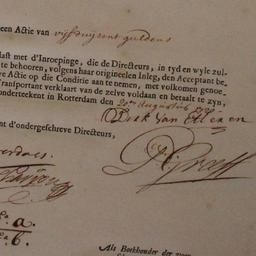 een Actie van vijfduijzent guldens
last met d'Inroepinge, die de Directeurs, in tyd en wyle zul-
te behooren, volgens haar origineelen Inleg, den Acceptant be-
ve Actie op die Conditie aan te nemen, met volkomen genoe-
Transportant verklaart van de zelve voldaan en betaalt te zyn,
onderteekent in Rotterdam den 20en Augustus
Dirk Van
nt d'ondergeschreve Directeurs,
Lo. a.
Lo. b.
Als Boekhouder der voor-